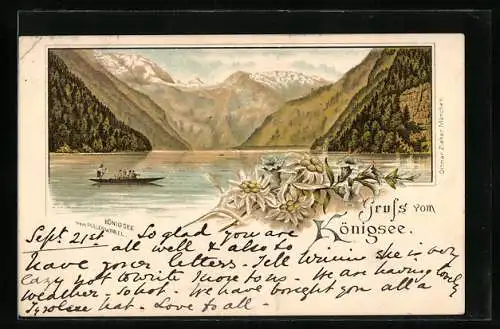 Ottmar Zieher, München
Gruſs vom
Königsee.
KÖNIGSEE
vom MALERWINKEL.
Sept 21st So glad you are
all well & also to
have your letters. Tell Winnie she is very
lazy not to write more to us. We are having lovely
weather. So hot. We have bought you all a
Tyrolese hat. Love to all.